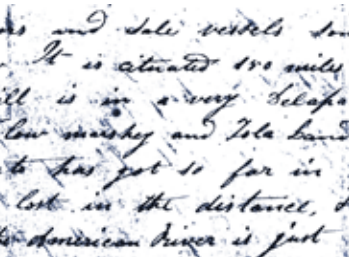 and sale vessels
It is cituated 150 miles
is in a very Delapa
low marshey and Tola Land
has got so far in
lost in the distance,
American River is just